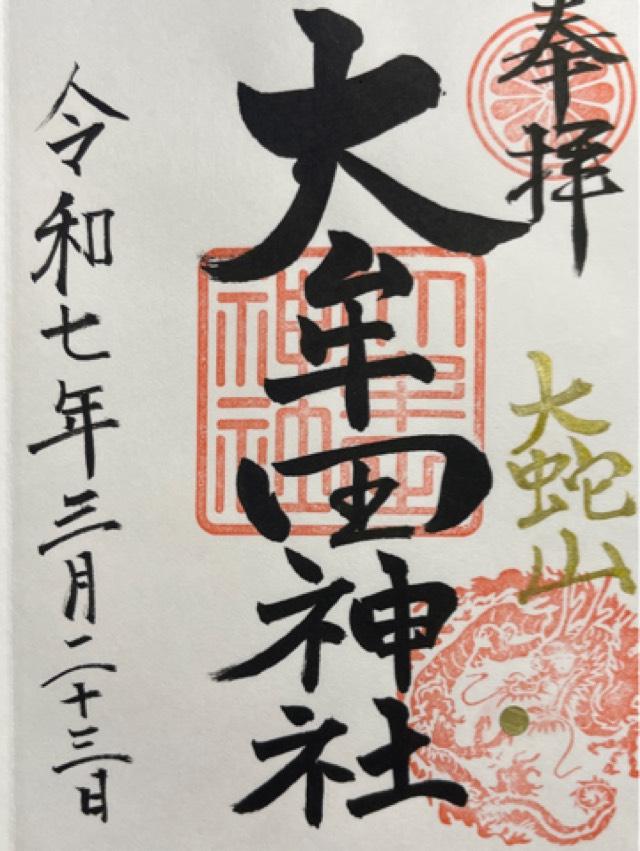 奉拝
大蛇山
大牟田神社
令和七年三月二十三日